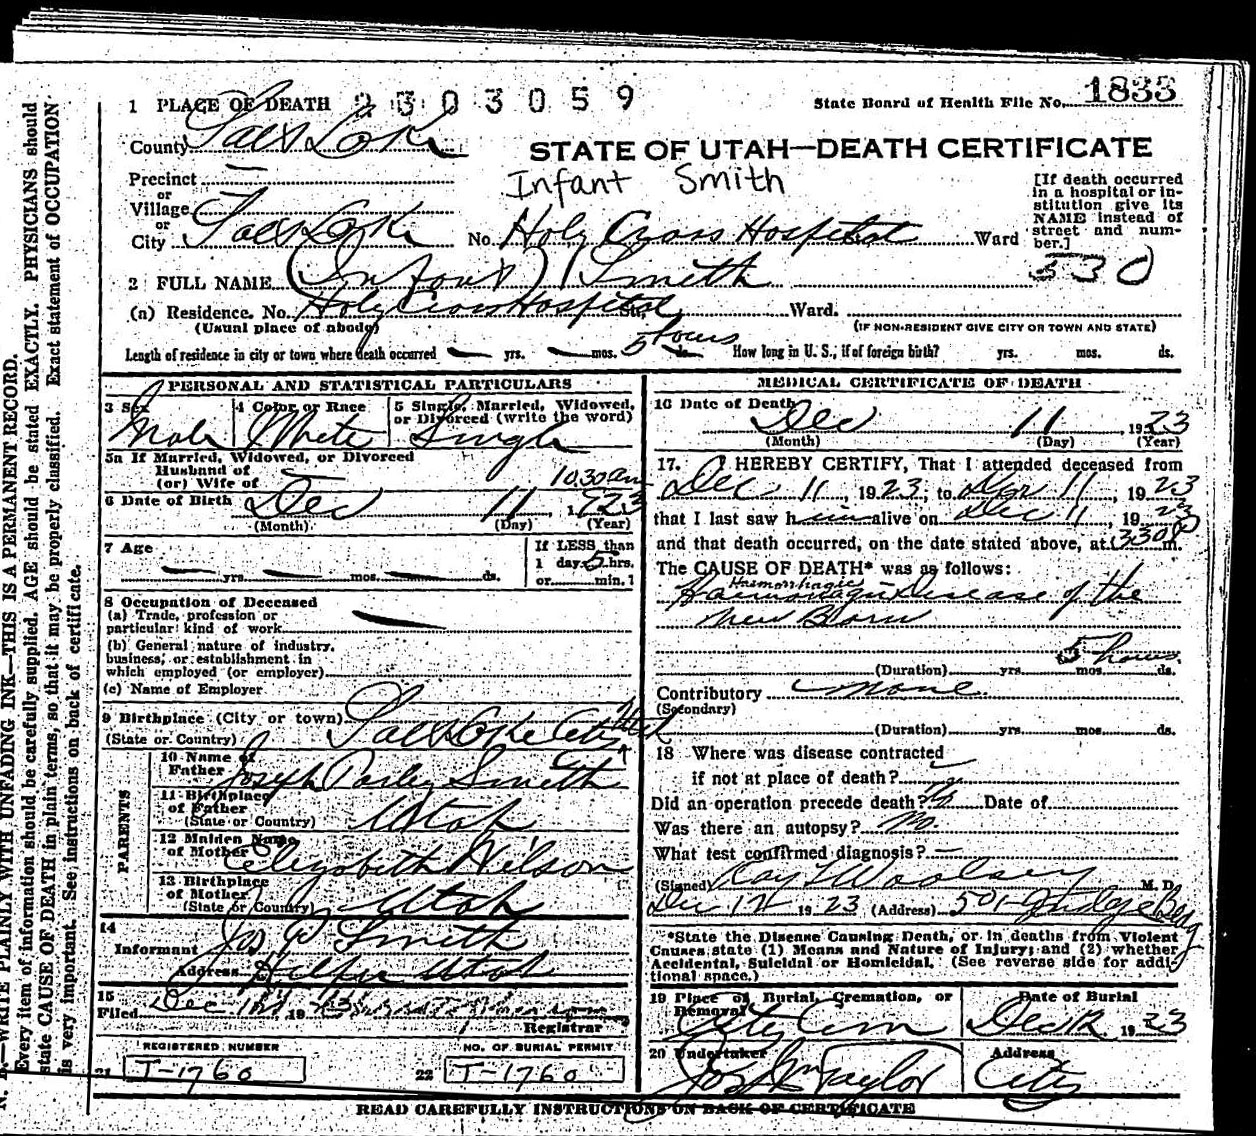 1 PLACE OF DEATH 2303059
State Board of Health File No. 1833
County Salt Lake
STATE OF UTAH—DEATH CERTIFICATE
Precinct
or
Village
or
City Salt Lake No. Holy Cross Hospital Ward
Infant Smith
[If death occurred
in a hospital or in-
stitution give its
NAME instead of
street and num-
ber.]
530
2 FULL NAME (Infant) Smith
(a) Residence. No. Holy Cross Hospital St. Ward.
(Usual place of abode)
(IF NON-RESIDENT GIVE CITY OR TOWN AND STATE)
Length of residence in city or town where death occurred — yrs. — mos. 5 hours ds. How long in U. S., if of foreign birth? yrs. mos. ds.
PERSONAL AND STATISTICAL PARTICULARS
3 Sex
Male
4 Color or Race
White
5 Single, Married, Widowed,
or Divorced (write the word)
Single
5a If Married, Widowed, or Divorced
Husband of
(or) Wife of —
10.30 am
6 Date of Birth Dec 11, 1923
(Month) (Day) (Year)
7 Age
— yrs. — mos. — ds.
If LESS than
1 day 5 hrs.
or min.?
8 Occupation of Deceased
(a) Trade, profession or
particular kind of work —
(b) General nature of industry,
business, or establishment in
which employed (or employer)
(c) Name of Employer
9 Birthplace (City or town) Salt Lake City Utah
(State or Country)
PARENTS
10 Name of
Father Joseph Parley Smith
11 Birthplace
of Father
(State or Country) Utah
12 Maiden Name
of Mother Elizabeth Wilson
13 Birthplace
of Mother
(State or Country) Utah
14
Informant Jos P Smith
Address Helper Utah
15
Filed Dec 1923
Registrar
REGISTERED NUMBER
21 T-1760
NO. OF BURIAL PERMIT
22 T-1760
MEDICAL CERTIFICATE OF DEATH
16 Date of Death
Dec 11 1923
(Month) (Day) (Year)
17. I HEREBY CERTIFY, That I attended deceased from
Dec 11, 1923, to Dec 11, 1923
that I last saw him alive on Dec 11, 1923
and that death occurred, on the date stated above, at 330P m.
The CAUSE OF DEATH* was as follows:
Haemorrhagic
Disease of the
New Born
5 hours
(Duration) yrs. mos. ds.
Contributory none
(Secondary)
(Duration) yrs. mos. ds.
18 Where was disease contracted
if not at place of death?
Did an operation precede death? No Date of
Was there an autopsy? No.
What test confirmed diagnosis? —
(Signed) Ray T Woolsey M. D.
Dec 12 1923 (Address) 501 Judge Bldg
*State the Disease Causing Death, or in deaths from Violent
Causes state (1) Means and Nature of Injury; and (2) whether
Accidental, Suicidal or Homicidal. (See reverse side for addi-
tional space.)
19 Place of Burial, Cremation, or
Removal
City Cem
Date of Burial
Dec 12 1923
20 Undertaker
Jos Wm Taylor
Address
City
READ CAREFULLY INSTRUCTIONS ON BACK OF CERTIFICATE
B.—WRITE PLAINLY WITH UNFADING INK—THIS IS A PERMANENT RECORD.
Every item of information should be carefully supplied. AGE should be stated EXACTLY. PHYSICIANS should
state CAUSE OF DEATH in plain terms, so that it may be properly classified. Exact statement of OCCUPATION
is very important. See instructions on back of certificate.